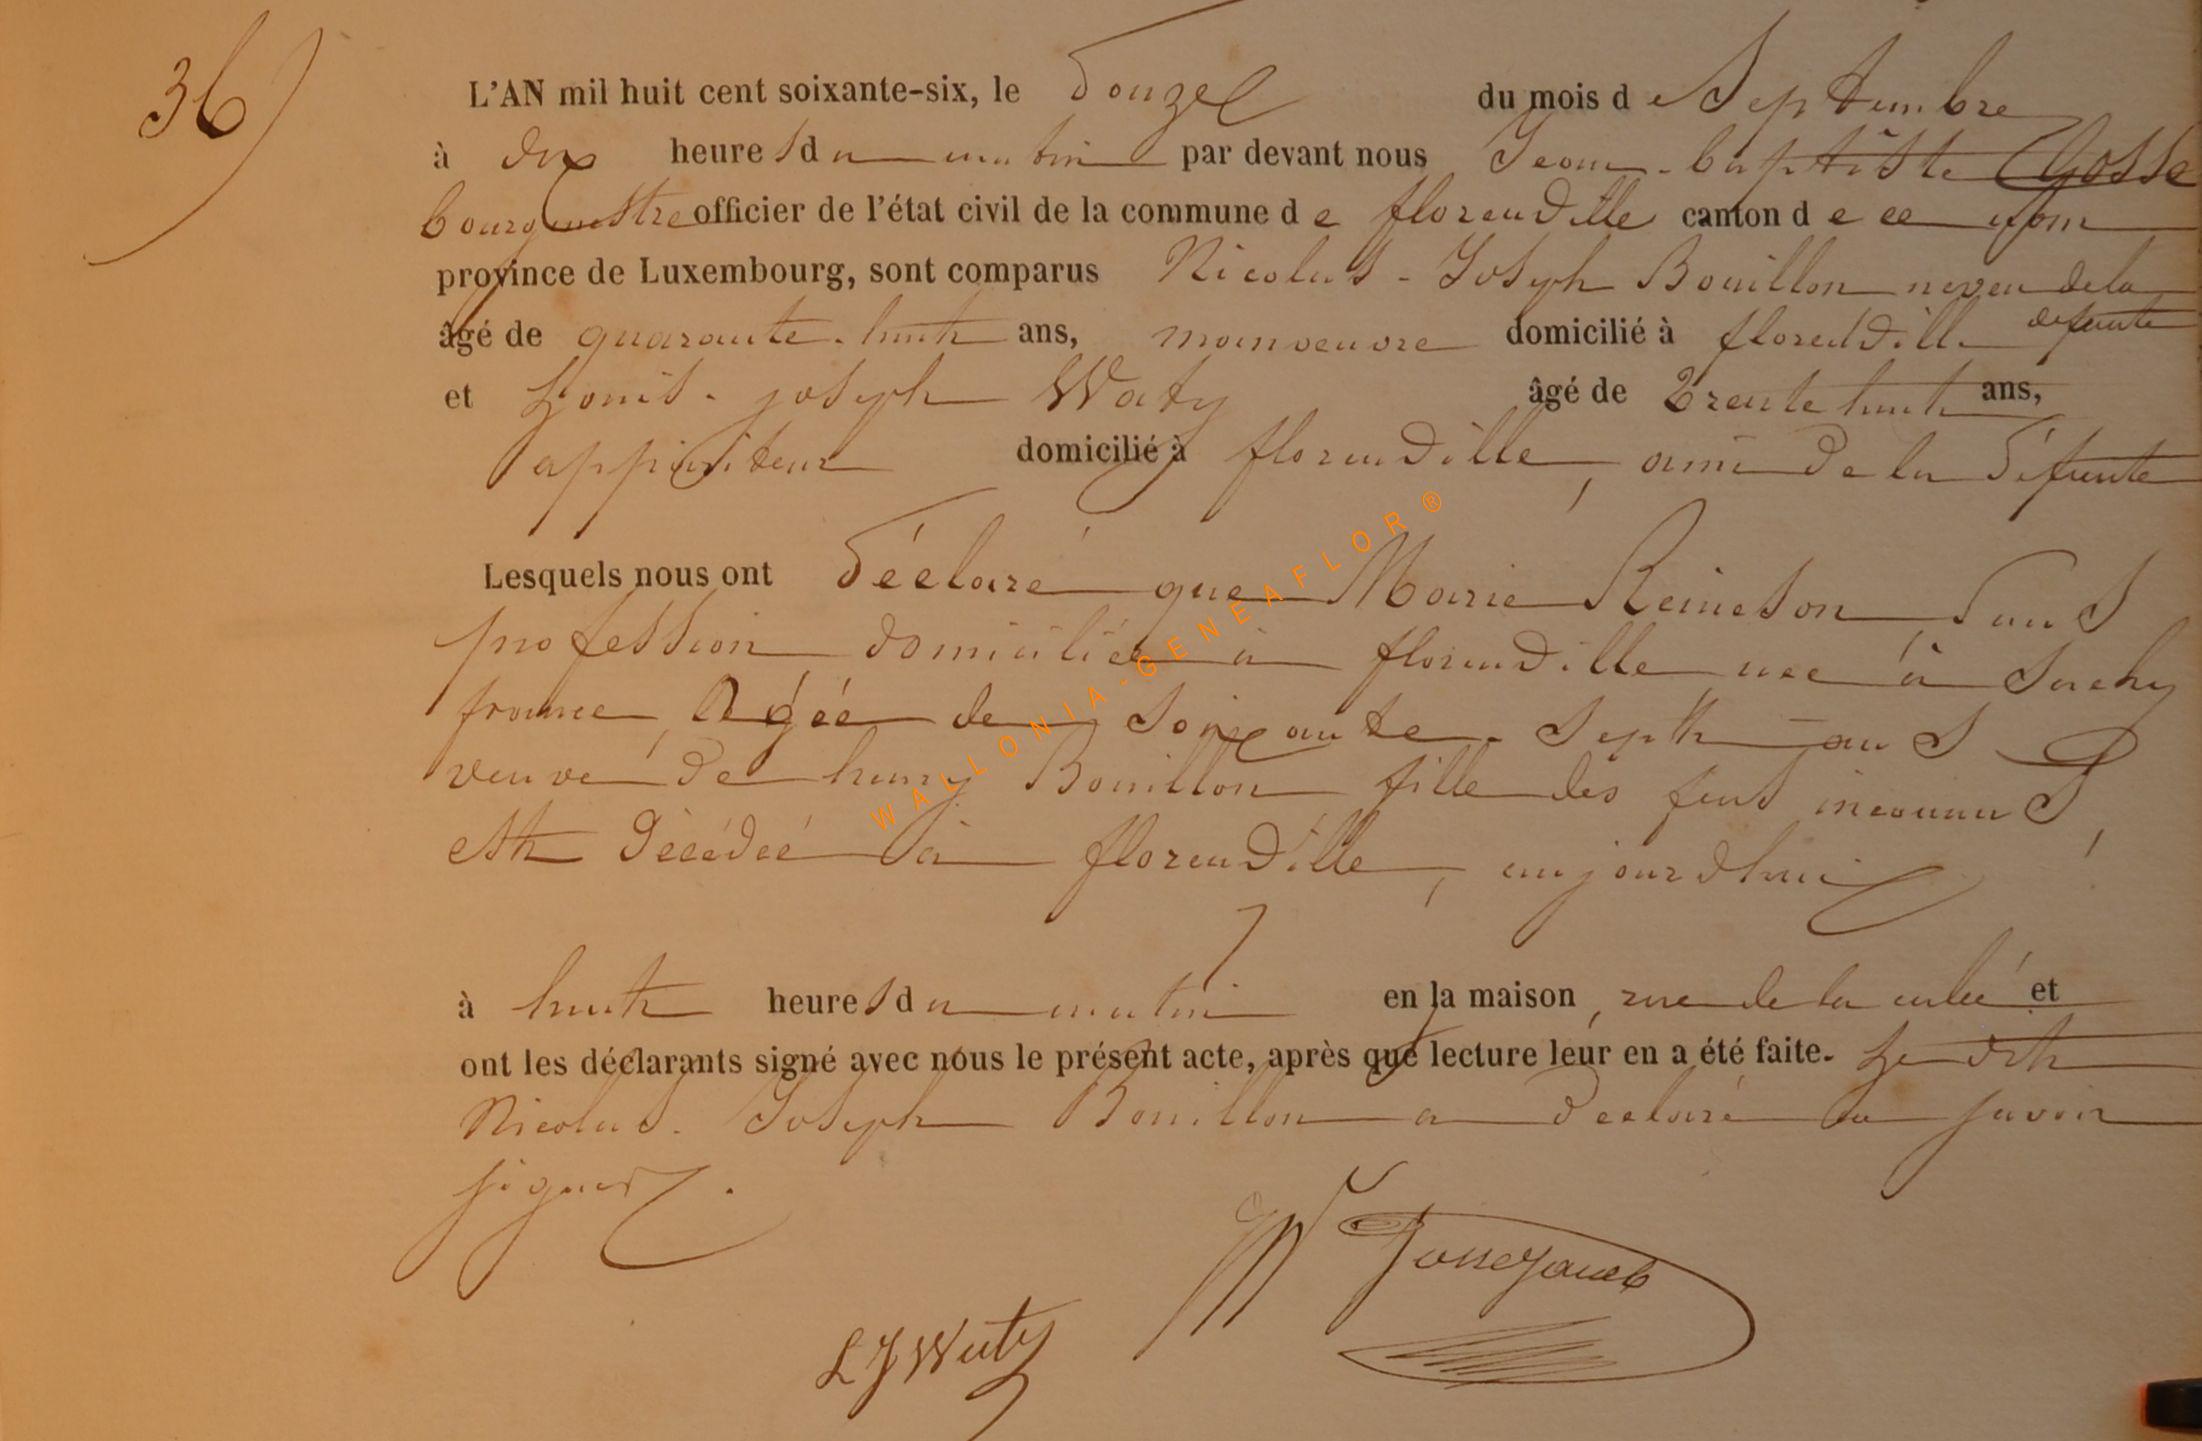 36)
L'AN mil huit cent soixante-six, le Douze du mois de Septembre
à dix heures du matin par devant nous Jean-baptiste Gosse
bourgmestre officier de l'état civil de la commune de florenville canton de ce nom
province de Luxembourg, sont comparus Nicolas-Joseph Bouillon neveu de la
défunte
âgé de quarante-huit ans, manoeuvre domicilié à florenville
et Louis-joseph Waty âgé de trente huit ans,
appariteur domicilié à florenville, ami de la défunte
Lesquels nous ont déclaré que Marie Reineson sans
profession domiciliée à florenville née à
france, agée de soixante-sept ans
veuve de henry Bouillon fille des feus inconnus,
est décédée à florenville, aujourdhui
à huit heures du matin en la maison, rue de la et
ont les déclarants signé avec nous le présent acte, après que lecture leur en a été faite. Le dit
Nicolas-Joseph Bouillon a déclaré ne savoir
signer.
L J Waty
WALLONIA-GENEAFLOR®